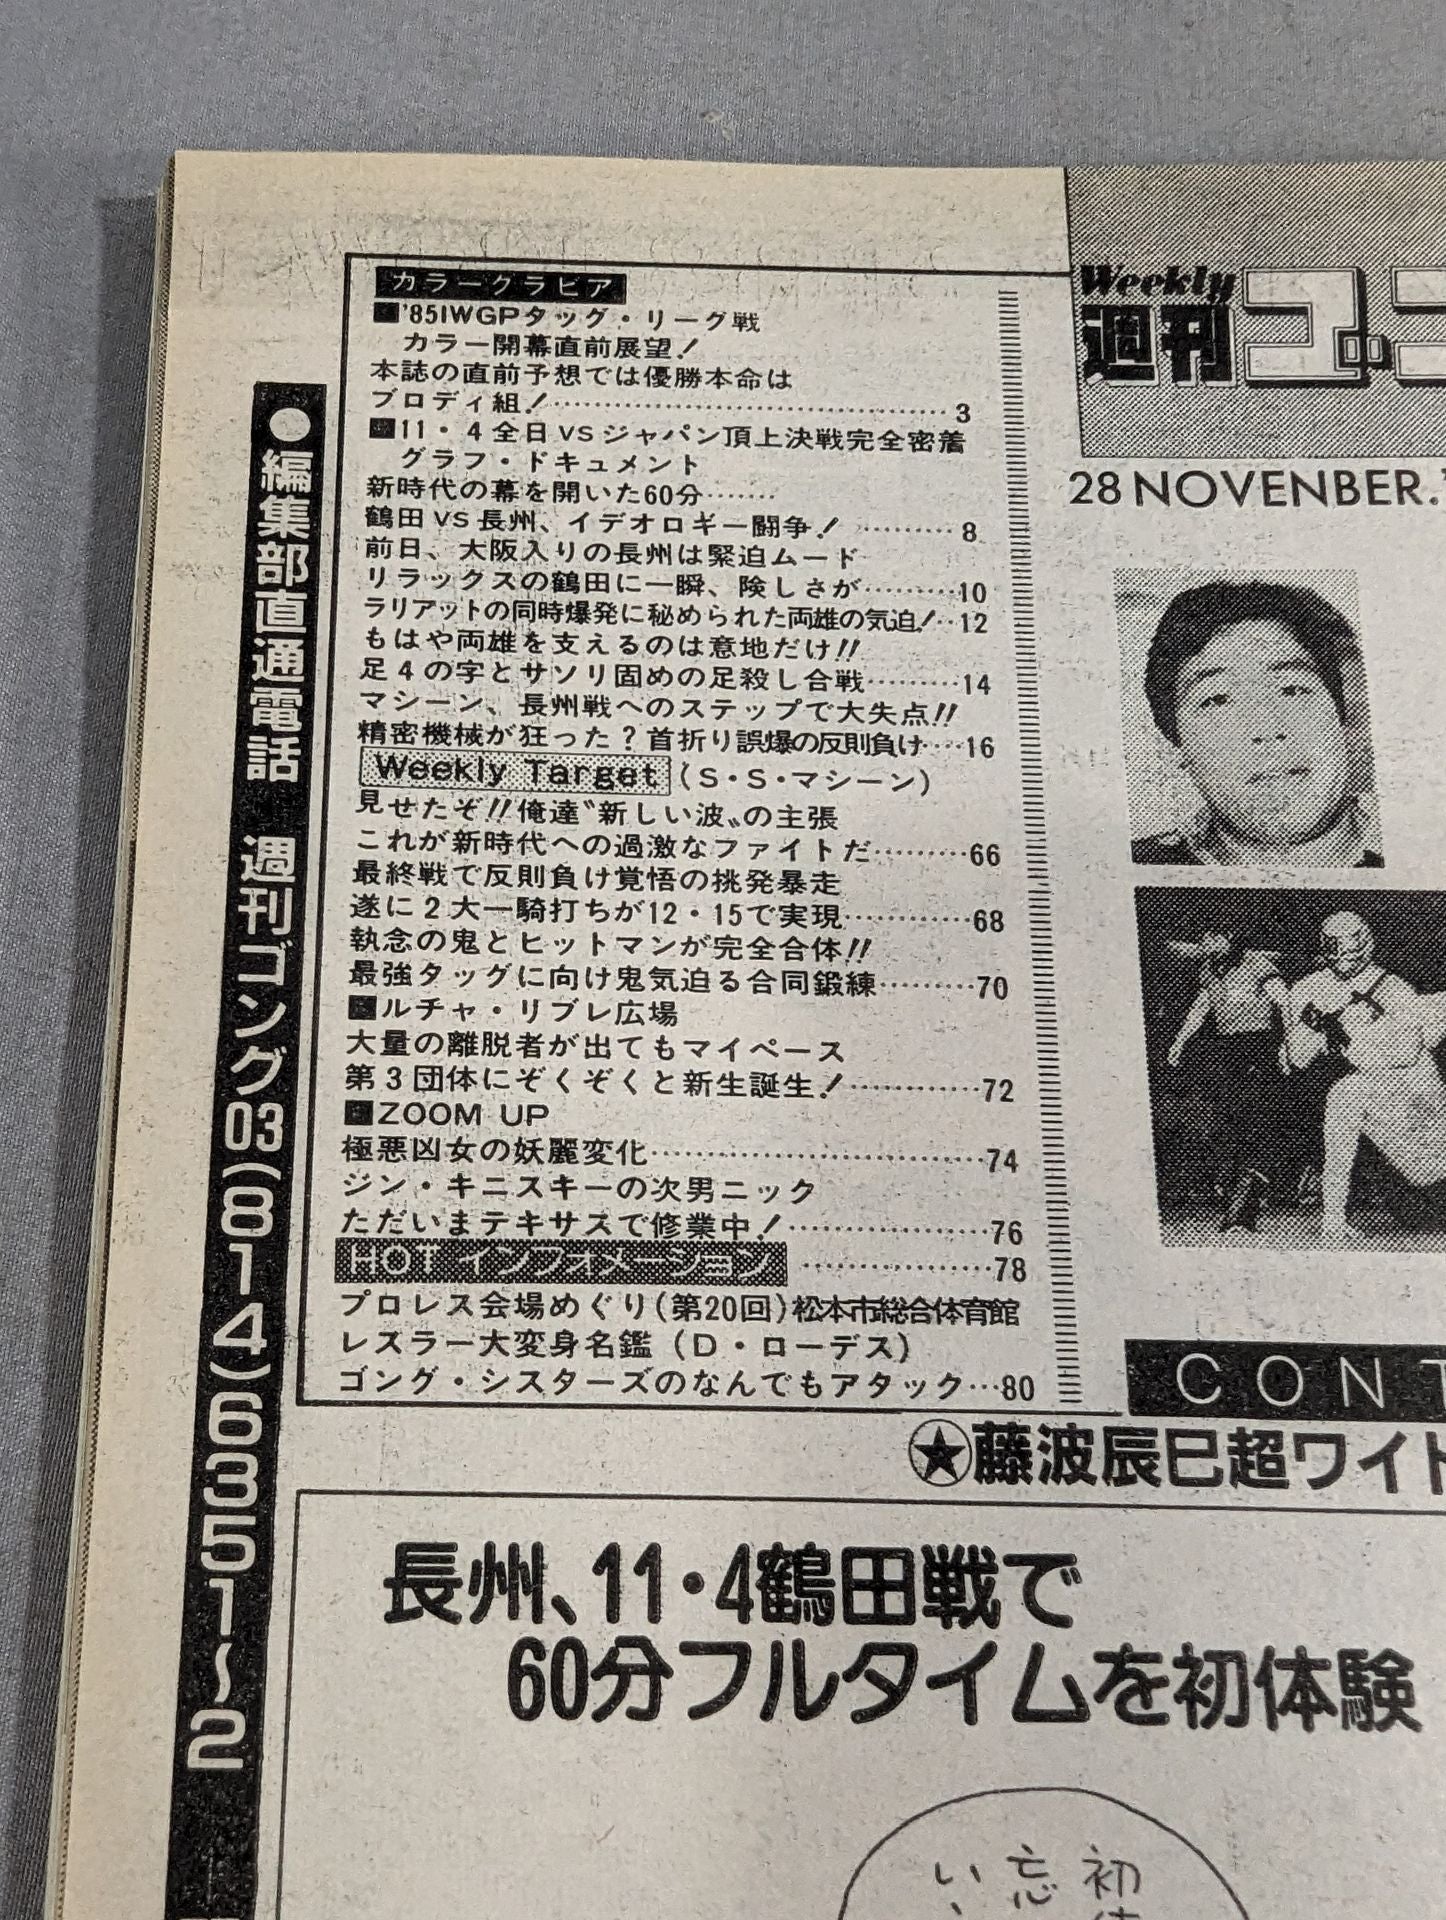 カラーグラビア
'85IWGPタッグ・リーグ戦
カラー開幕直前展望!
本誌の直前予想では優勝本命は
ブロディ組!……………………………………3
11・4全日VSジャパン頂上決戦完全密着
グラフ・ドキュメント
新時代の幕を開いた60分……
鶴田VS長州、イデオロギー闘争!………8
前日、大阪入りの長州は緊迫ムード
リラックスの鶴田に一瞬、険しさが………10
ラリアットの同時爆発に秘められた両雄の気迫!…12
もはや両雄を支えるのは意地だけ!!
足4の字とサソリ固めの足殺し合戦………14
マシーン、長州戦へのステップで大失点!!
精密機械が狂った?首折り誤爆の反則負け…16
Weekly Target(S・S・マシーン)
見せたぞ!!俺達〝新しい波〟の主張
これが新時代への過激なファイトだ………66
最終戦で反則負け覚悟の挑発暴走
遂に2大一騎打ちが12・15で実現…………68
執念の鬼とヒットマンが完全合体!!
最強タッグに向け鬼気迫る合同鍛練………70
ルチャ・リブレ広場
大量の離脱者が出てもマイペース
第3団体にぞくぞくと新生誕生!…………72
ZOOM UP
極悪凶女の妖麗変化……………………………74
ジン・キニスキーの次男ニック
ただいまテキサスで修業中!………………76
HOTインフォメーション………………78
プロレス会場めぐり(第20回)松本市総合体育館
レスラー大変身名鑑(D・ローデス)
ゴング・シスターズのなんでもアタック…80
●編集部直通電話 週刊ゴング03(814)6351〜2
Weekly
週刊ゴ
28 NOVENBER.'
CONT
★藤波辰巳超ワイド
長州、11・4鶴田戦で
60分フルタイムを初体験
初
忘
い